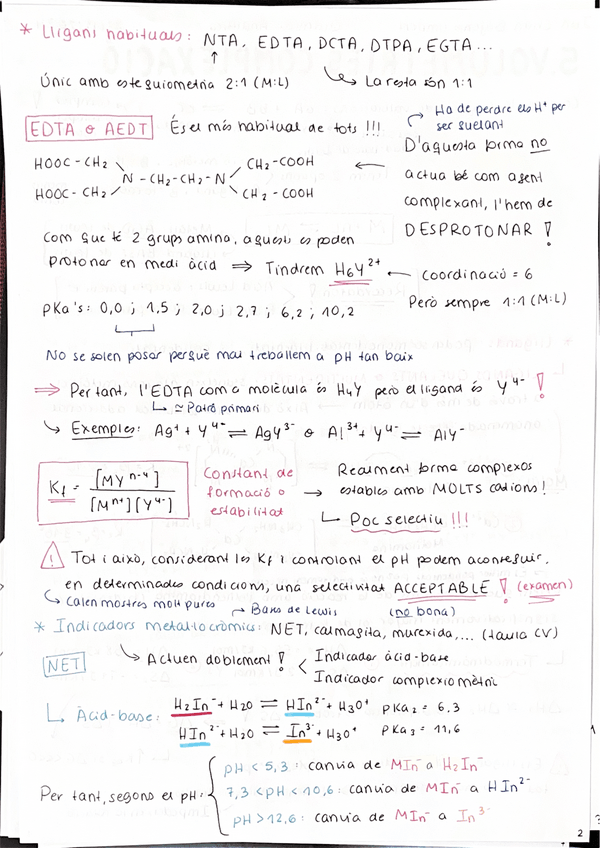 * Lligani habituals: NTA, EDTA, DCTA, DTPA, EGTA...
↑
Únic amb estequiometria 2:1 (M:L) → La resta són 1:1
EDTA o AEDT És el més habitual de tots !!!
→ Ha de perdre els H⁺ per
ser quelant
HOOC - CH₂ CH₂ - COOH
N - CH₂ - CH₂ - N
HOOC - CH₂ CH₂ - COOH
← D'aquesta forma no
actua bé com a agent
complexant, l'hem de
DESPROTONAR !
Com que té 2 grups amina, aquests es poden
protonar en medi àcid ⇒ Tindrem H₆Y²⁺ ← Coordinació = 6
Però sempre 1:1 (M:L)
pKa's: 0,0 ; 1,5 ; 2,0 ; 2,7 ; 6,2 ; 10,2
No se solen posar perquè mai treballem a pH tan baix
⇒ Per tant, l'EDTA com a molècula és H₄Y però el lligand és Y⁴⁻ !
↳ ≃ Patró primari
↳ Exemples: Ag⁺ + Y⁴⁻ ⇌ AgY³⁻ o Al³⁺ + Y⁴⁻ ⇌ AlY⁻
Kf = [MYⁿ⁻⁴] / [Mⁿ⁺][Y⁴⁻]
Constant de
formació o
estabilitat
→ Realment forma complexos
estables amb MOLTS cations!
↳ Poc selectiu !!!
⚠ Tot i això, considerant les Kf i controlant el pH podem aconseguir,
en determinades condicions, una selectivitat ACCEPTABLE ! (examen)
↳ Calen mostres molt pures (no bona)
→ Base de Lewis
* Indicadors metal·locròmics: NET, calmagita, murexida,... (taula CV)
NET
↳ Actuen doblement ! Indicador àcid-base
Indicador complexiomètric
↳ Àcid-base: H₂In⁻ + H₂O ⇌ HIn²⁻ + H₃O⁺ pKa₂ = 6,3
HIn²⁻ + H₂O ⇌ In³⁻ + H₃O⁺ pKa₃ = 11,6
Per tant, segons el pH:
pH < 5,3: canvia de MIn⁻ a H₂In⁻
7,3 < pH < 10,6: canvia de MIn⁻ a HIn²⁻
pH > 12,6: canvia de MIn⁻ a In³⁻
2